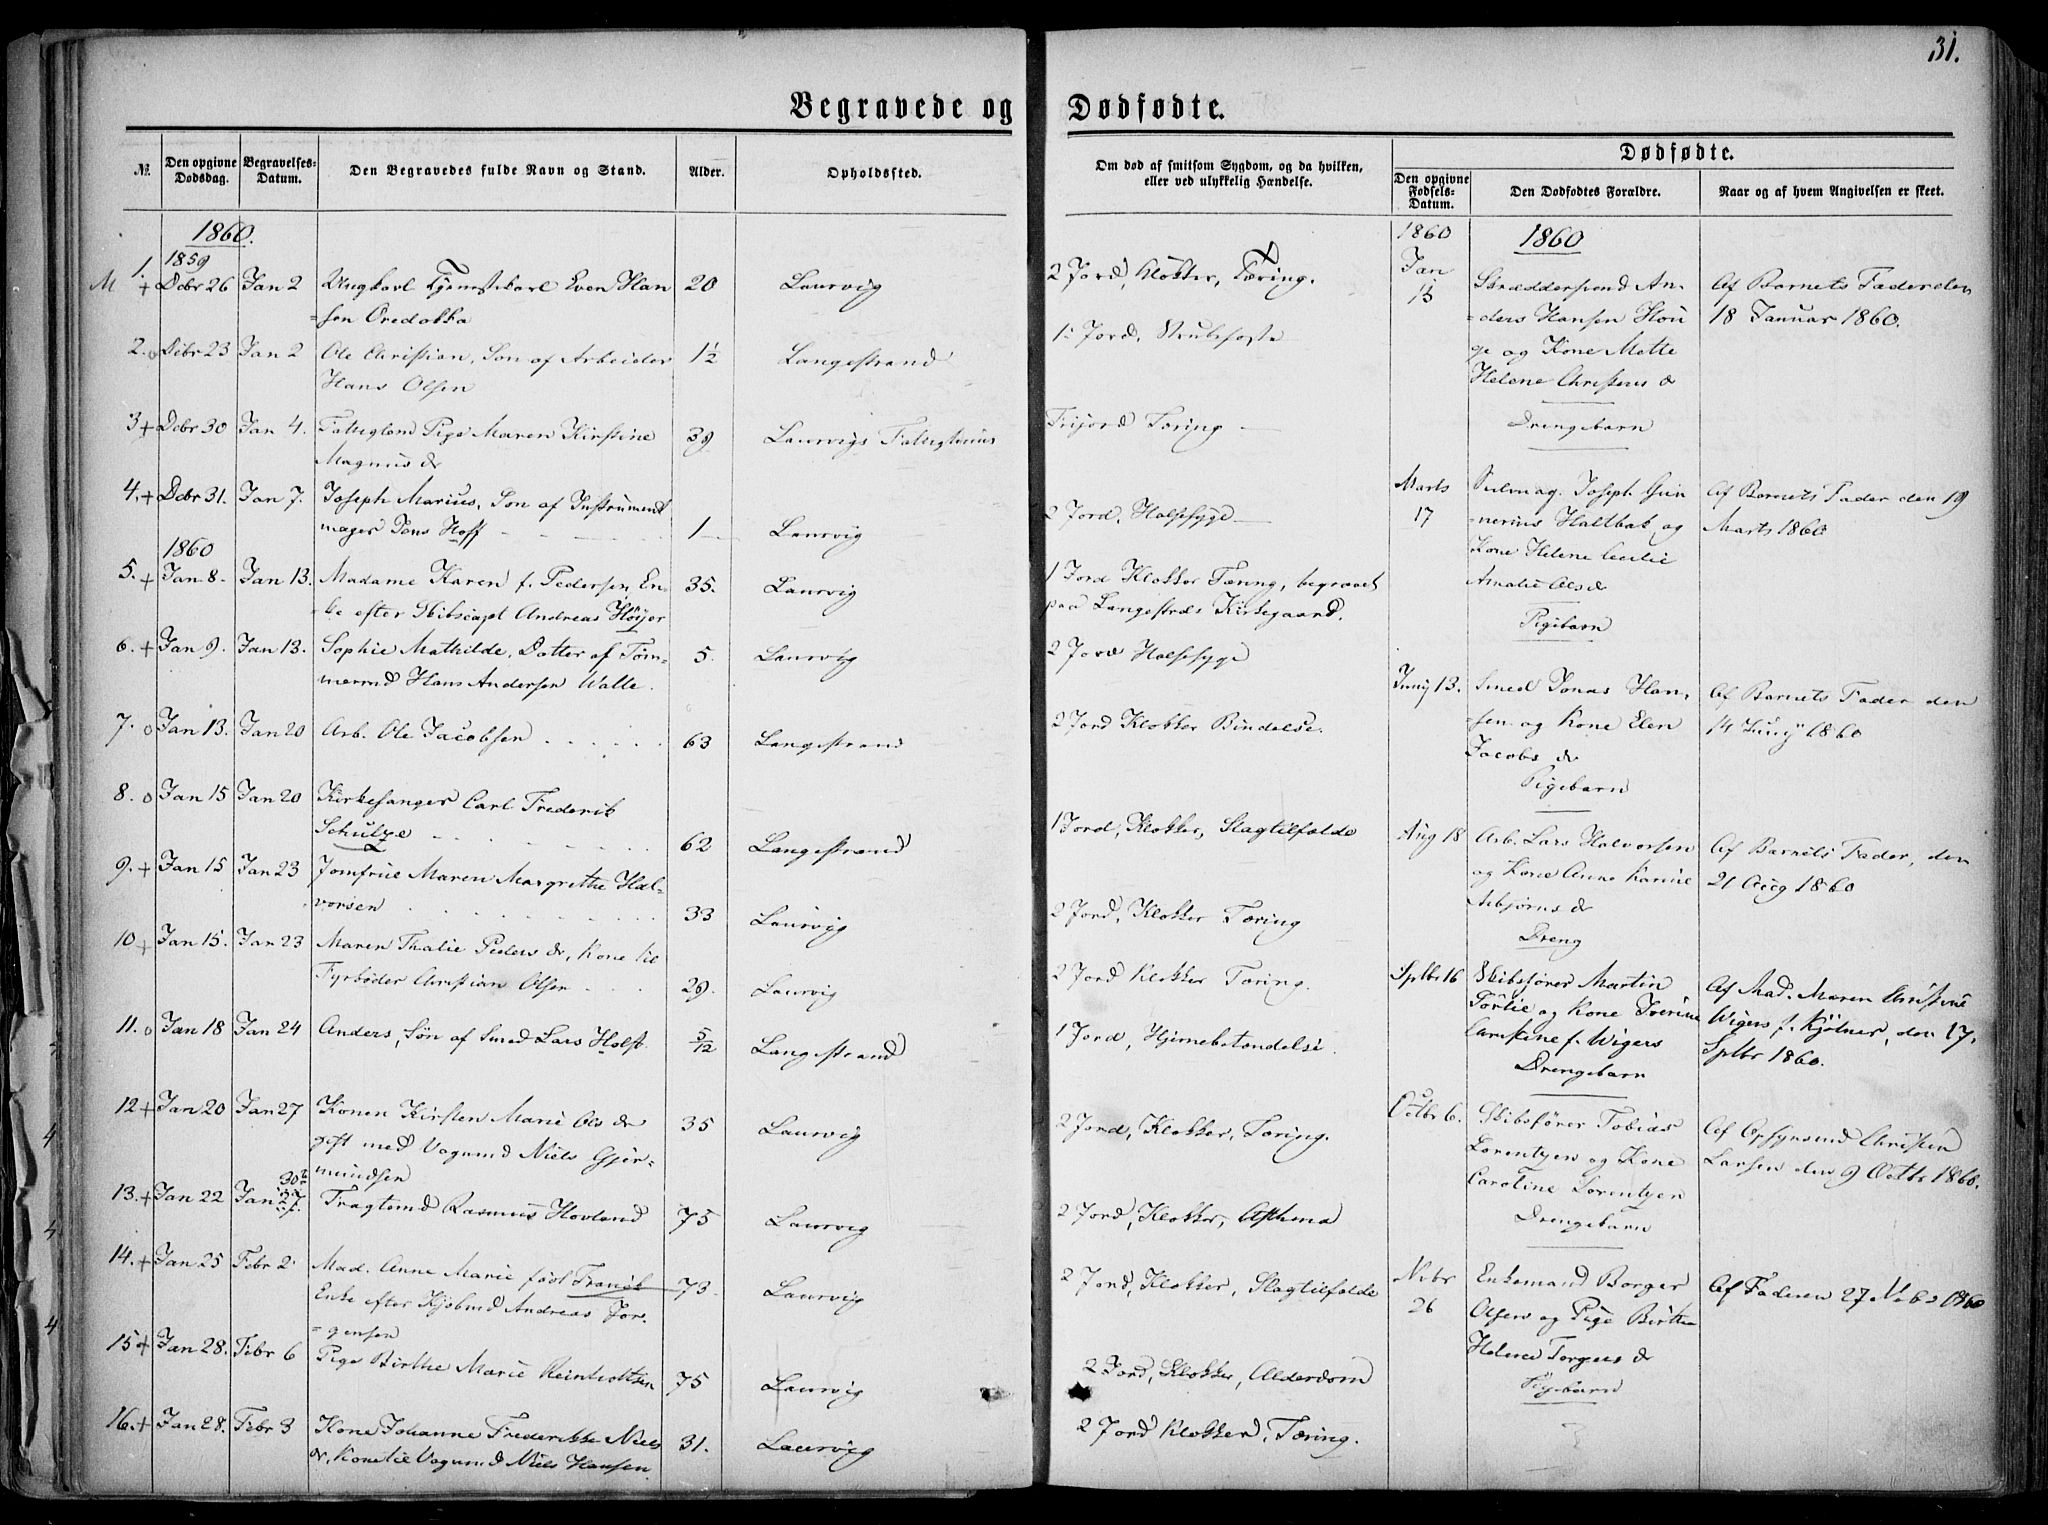 31.
Begravede og Dødfødte.
№
Den opgivne Dødsdag.
Begravelses-Datum.
Den Begravedes fulde Navn og Stand.
Alder.
Opholdssted.
Om død af smitsom Sygdom, og da hvilken,
eller ved ulykkelig Hændelse.
Dødfødte.
Den opgivne Fødsels-Datum.
Den Dødfødtes Forældre.
Naar og af hvem Angivelsen er skeet.
1860.
1859
M 1. + Dcbr 26 Jan 2 Ungkarl Tjenestekarl Even Han 20 Laurvig 2 Jord, Klokker, Tæring.
=sen Oredokka
2. o Dcbr 23 Jan 2 Ole Christian, Søn af Arbeider 1½ Langestrand 1. Jord, Strubehoste
Hans Olsen
3 + Dcbr 30 Jan 4. Fattiglem Pige Maren Kirstine 39 Laurvigs Fattighuus Frijord Tæring
Magnus dr
4. + Dcbr 31. Jan 7. Joseph Marius, Søn af Instrument
mager Jens Hoff 1 Laurvig 2 Jord, Halssyge
1860
5. + Jan 8. Jan 13. Madame Karen f. Pedersen, En- 35. Laurvig 1 Jord Klokker Tæring, begravet
=ke efter Skibscapt Andreas Höyer paa Langestrds Kirkegaard.
6. + Jan 9. Jan 13. Sophie Mathilde, Datter af Töm- 5. Laurvig 2 Jord Halssyge
mermd Hans Andersen Walle.
7. o Jan 13. Jan 20 Arb. Ole Jacobsen 63 Langestrand 2 Jord Klokker Bindelse.
8. o Jan 15 Jan 20 Kirkesanger Carl Frederik
Schulze 62 Langestrand 1 Jord, Klokker, Slagtilfælde
9. + Jan 15 Jan 23 Jomfrue Maren Margrethe Hal-
vorsen 33 Laurvig 2 Jord, Klokker Tæring
10 + Jan 15. Jan 23 Maren Thalie Peders dr, Kone til
Fyrbøder Christian Olsen 29. Laurvig 2 Jord Klokker Tæring.
11. o Jan 18 Jan 24 Anders, Søn af Smed Lars Holst 5/12 Langestrand 1 Jord, Hjernebetændelse.
12 + Jan 20 Jan 27 Konen Kirsten Marie Ols dr 35 Laurvig 2 Jord, Klokker, Tæring.
gift med Vognmd Niels Gjer-
mundsen
13. + Jan 22 Jan 27 30 Fragtemd Rasmus Hovland 75 Laurvig 2 Jord, Klokker, Asthma
14. + Jan 25 Febr 2 Mad. Anne Marie född Franck 73 Laurvig 2 Jord, Klokker, Slagtilfælde
Enke efter Kjøbmd Andreas Jør-
=gensen
15 + Jan 28. Febr 6 Pige Birthe Marie Reinholtsen 75 Laurvig 2 Jord, Klokker, Alderdom
16. + Jan 28. Febr 3 Kone Johanne Frederikke Niels 31. Laurvig 2 Jord Klokker, Tæring.
dr, Kone til Vognmd Niels Hansen
1860
1860
Jan 13 Skræddersvend An-
=ders Hansen Hou
ge og Kone Mette
Helene Christens dr
Drengebarn
Af Barnets Fader den
18 Januar 1860.
Marts 17 Joseph Gun
=nerius Holtbak og
Kone Helene Cecilie
Amalie Ols dr
Pigebarn
Af Barnets Fader den 19
Marts 1860
Juny 13. Smed Jonas Han-
=sen og Kone Elen
Jacobs dr
Pigebarn
Af Barnets Fader den
14 Juny 1860
Aug 18 Arb. Lars Halvorsen
og Kone Anne Karine
Asbjørns dr
Dreng
Af Barnets Fader, den
21 Aug 1860
Sptbr 16 Skibsfører Martin
og Kone Iverine
Christine f. Wigers
Drengebarn
Af Mad. Maren Christine
Wigers f. Kjölner, den 17.
Sptbr 1860.
Octbr 6. Skibsfører Tobias
Lorentzen og Kone
Caroline Lorentzen
Drengebarn
Af Opsynsmd Christen
Larsen den 9 Octbr 1860.
Nvbr 26 Enkemand Borger
Olsen og Pige Birthe
Helene Torgers dr
Pigebarn
Af Faderen 27 Nvbr 1860